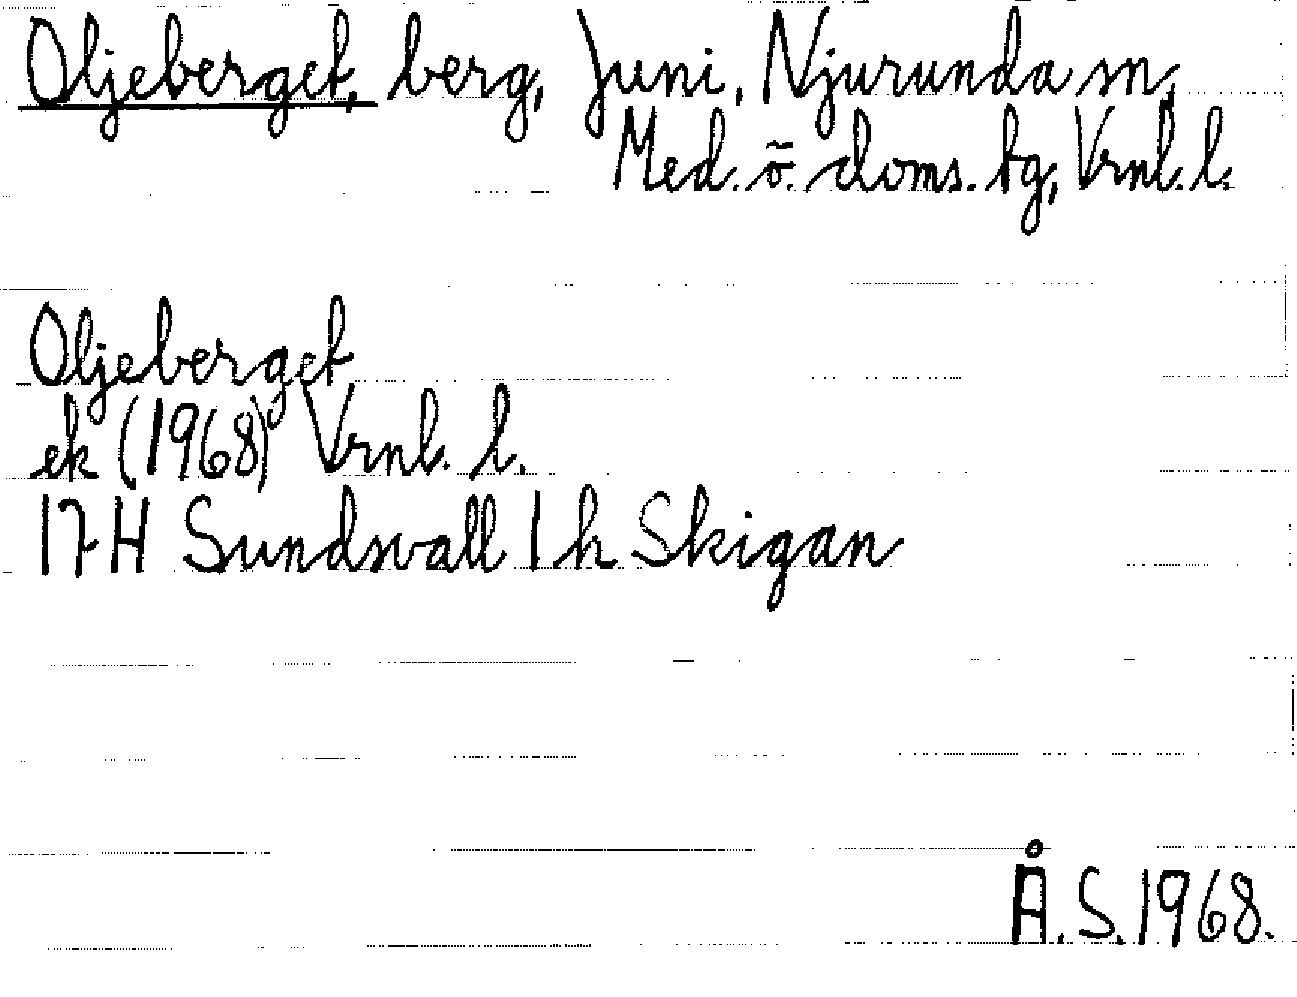 Oljeberget, berg, Juni, Njurunda sn,
Med. ö. doms. tg, Vrnl. l.
Oljeberget
ek (1968) Vrnl. l.
17 H Sundsvall 1 h Skigan
Å. S. 1968.